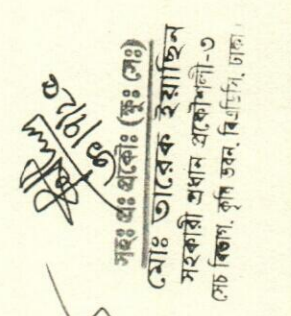 ৩১/৭/২৫
সহঃ প্রঃ প্রকৌঃ (ক্ষুঃ সেঃ)
মোঃ তারেক ইয়াছিন
সহকারী প্রধান প্রকৌশলী-৩
সেচ বিভাগ, কৃষি ভবন, বিএডিসি, ঢাকা।